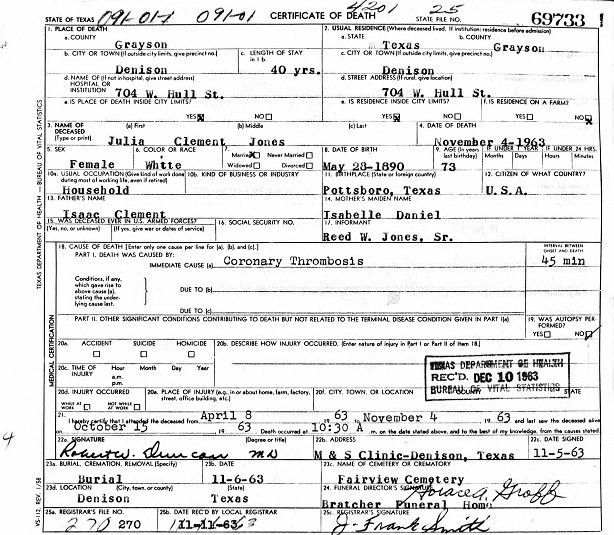 STATE OF TEXAS 091-01-1 091-01 CERTIFICATE OF DEATH 4201 STATE FILE NO. 25 69733
1. PLACE OF DEATH
a. COUNTY
Grayson
2. USUAL RESIDENCE (Where deceased lived. If institution: residence before admission)
a. STATE
Texas
b. COUNTY
Grayson
b. CITY OR TOWN (If outside city limits, give precinct no.)
Denison
c. LENGTH OF STAY in 1 b.
40 yrs.
c. CITY OR TOWN (If outside city limits, give precinct no.)
Denison
d. NAME OF (If not in hospital, give street address)
HOSPITAL OR
INSTITUTION 704 W. Hull St.
d. STREET ADDRESS (If rural, give location)
704 W. Hull St.
e. IS PLACE OF DEATH INSIDE CITY LIMITS?
YES X NO
e. IS RESIDENCE INSIDE CITY LIMITS?
YES X NO
f. IS RESIDENCE ON A FARM?
YES NO X
3. NAME OF DECEASED (Type or print)
(a) First (b) Middle (c) Last
Julia Clement Jones
4. DATE OF DEATH
November 4-1963
5. SEX
Female
6. COLOR OR RACE
White
7.
Married X Never Married
Widowed Divorced
8. DATE OF BIRTH
May 28-1890
9. AGE (In years last birthday)
73
IF UNDER 1 YEAR
Months Days
IF UNDER 24 HRS.
Hours Minutes
10a. USUAL OCCUPATION (Give kind of work done during most of working life, even if retired)
Household
10b. KIND OF BUSINESS OR INDUSTRY
11. BIRTHPLACE (State or foreign country)
Pottsboro, Texas
12. CITIZEN OF WHAT COUNTRY?
U.S.A.
13. FATHER'S NAME
Isaac Clement
14. MOTHER'S MAIDEN NAME
Isabelle Daniel
15. WAS DECEASED EVER IN U.S. ARMED FORCES?
(Yes, no, or unknown) (If yes, give war or dates of service)
16. SOCIAL SECURITY NO.
17. INFORMANT
Reed W. Jones, Sr.
18. CAUSE OF DEATH [Enter only one cause per line for (a), (b), and (c).]
PART I. DEATH WAS CAUSED BY:
IMMEDIATE CAUSE (a) Coronary Thrombosis
INTERVAL BETWEEN ONSET AND DEATH
45 min
Conditions, if any, which gave rise to above cause (a), stating the underlying cause last.
DUE TO (b)
DUE TO (c)
PART II. OTHER SIGNIFICANT CONDITIONS CONTRIBUTING TO DEATH BUT NOT RELATED TO THE TERMINAL DISEASE CONDITION GIVEN IN PART I(a)
19. WAS AUTOPSY PERFORMED?
YES NO
20a. ACCIDENT SUICIDE HOMICIDE
20b. DESCRIBE HOW INJURY OCCURRED. (Enter nature of injury in Part I or Part II of item 18.)
20c. TIME OF INJURY
Hour Month Day Year
a.m.
p.m.
TEXAS DEPARTMENT OF HEALTH
REC'D. DEC 10 1963
BUREAU OF VITAL STATISTICS
20d. INJURY OCCURRED
WHILE AT WORK NOT WHILE AT WORK
20e. PLACE OF INJURY (e.g., in or about home, farm, factory, street, office building, etc.)
20f. CITY, TOWN, OR LOCATION COUNTY STATE
21. I hereby certify that I attended the deceased from April 8 1963 to November 4 1963 and last saw the deceased alive
on October 15 1963 Death occurred at 10:30 A m. on the date stated above, and to the best of my knowledge, from the causes stated.
22a. SIGNATURE (Degree or title)
Robert W. Duncan MD
22b. ADDRESS
M & S Clinic-Denison, Texas
22c. DATE SIGNED
11-5-63
23a. BURIAL, CREMATION, REMOVAL (Specify)
Burial
23b. DATE
11-6-63
23c. NAME OF CEMETERY OR CREMATORY
Fairview Cemetery
23d. LOCATION (City, town, or county) (State)
Denison Texas
24. FUNERAL DIRECTOR'S SIGNATURE
Horace A. Groff
Bratcher Funeral Home
25a. REGISTRAR'S FILE NO.
270 270
25b. DATE REC'D BY LOCAL REGISTRAR
11-11-63
25c. REGISTRAR'S SIGNATURE
J. Frank Smith
TEXAS DEPARTMENT OF HEALTH — BUREAU OF VITAL STATISTICS
MEDICAL CERTIFICATION
VS-112, REV. 1/58
4